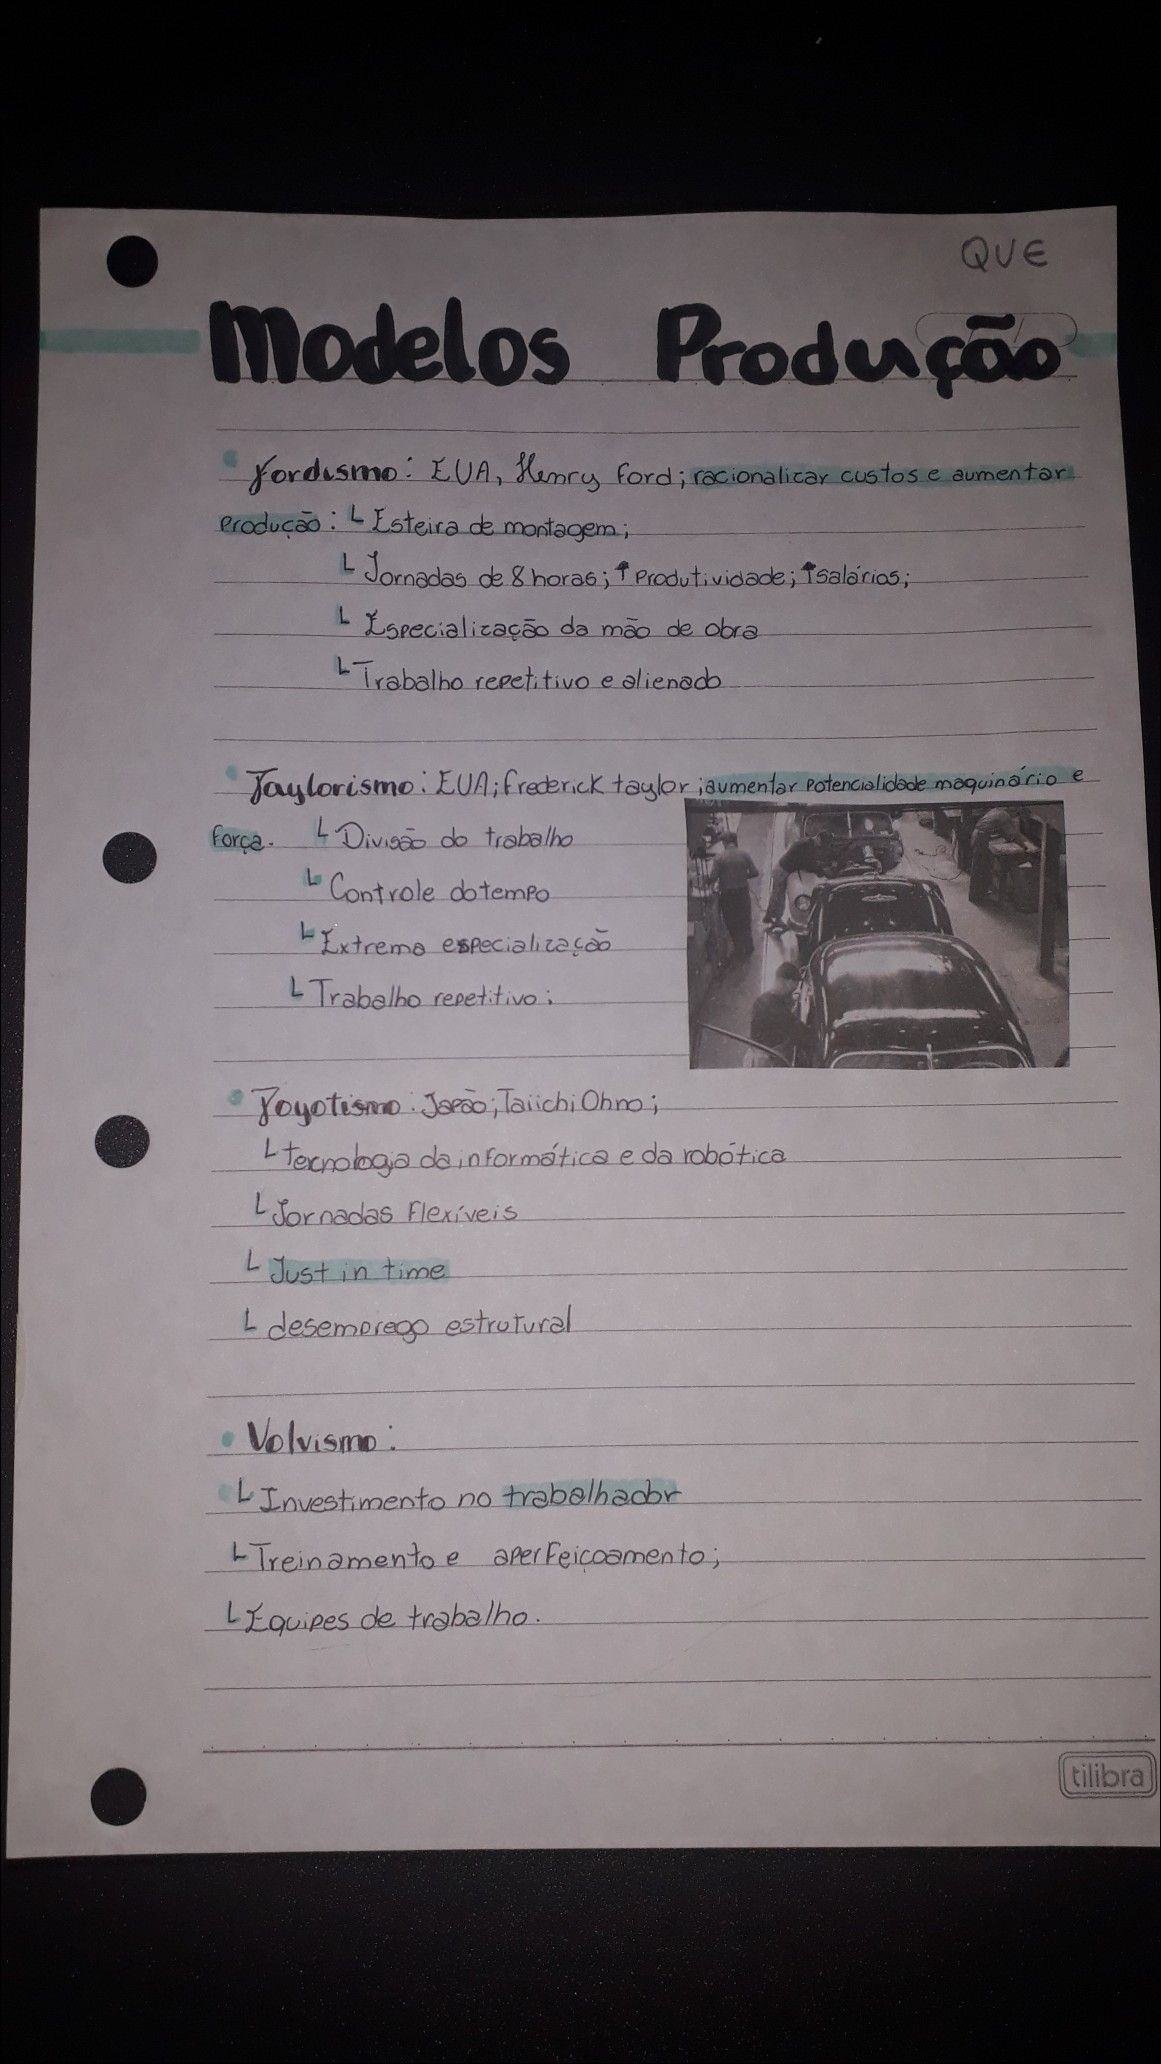 QUE
Modelos Produção
Fordismo: EUA, Henry Ford; racionalizar custos e aumentar
Produção: └ Esteira de montagem;
└ Jornadas de 8 horas; ↑ Produtividade; ↑ salários;
└ Especialização da mão de obra
└ Trabalho repetitivo e alienado
Taylorismo: EUA; Frederick taylor; aumentar potencialidade maquinário e
Força. └ Divisão do trabalho
└ Controle do tempo
└ Extrema especialização
└ Trabalho repetitivo;
Toyotismo: Japão; Taiichi Ohno;
└ tecnologia da informática e da robótica
└ Jornadas Flexíveis
└ Just in time
└ desemprego estrutural
Volvismo:
└ Investimento no trabalhador
└ Treinamento e aperfeiçoamento;
└ Equipes de trabalho.
tilibra